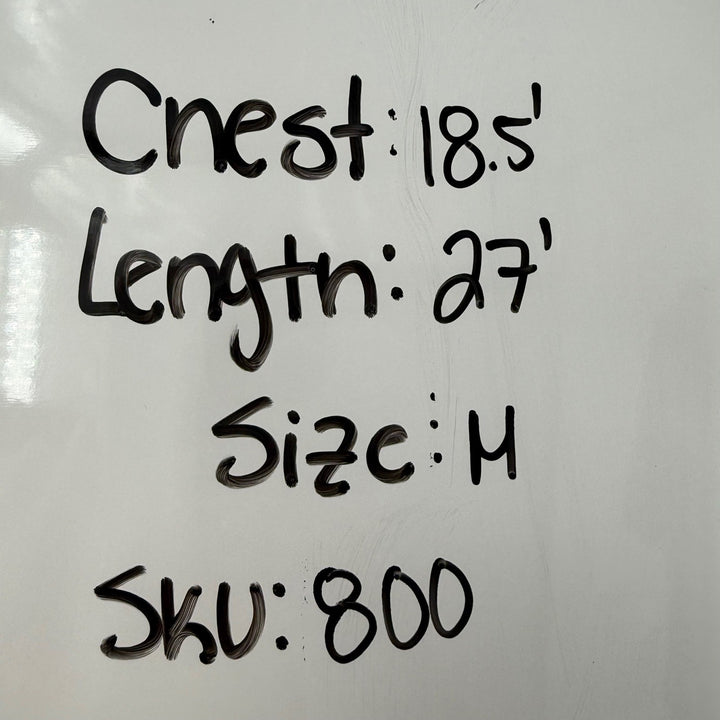 Chest: 18.5'
Length: 27'
Size: M
SKU: 800